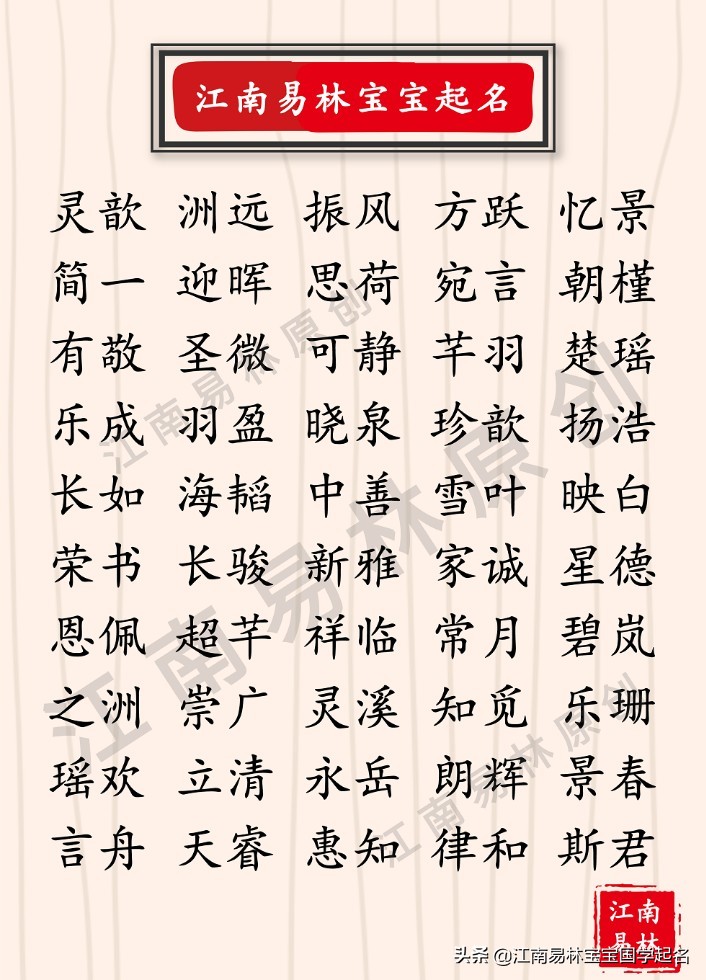 江南易林宝宝起名
灵歆 洲远 振风 方跃 忆景
简一 迎晖 思荷 宛言 朝槿
有敬 圣微 可静 芊羽 楚瑶
乐成 羽盈 晓泉 珍歆 扬浩
长如 海韬 中善 雪叶 映白
荣书 长骏 新雅 家诚 星德
恩佩 超芊 祥临 常月 碧岚
之洲 崇广 灵溪 知觅 乐珊
瑶欢 立清 永岳 朗辉 景春
言舟 天睿 惠知 律和 斯君
江南易林原创
江南易林原创
江南易林原创
江南
易林
头条 @江南易林宝宝国学起名